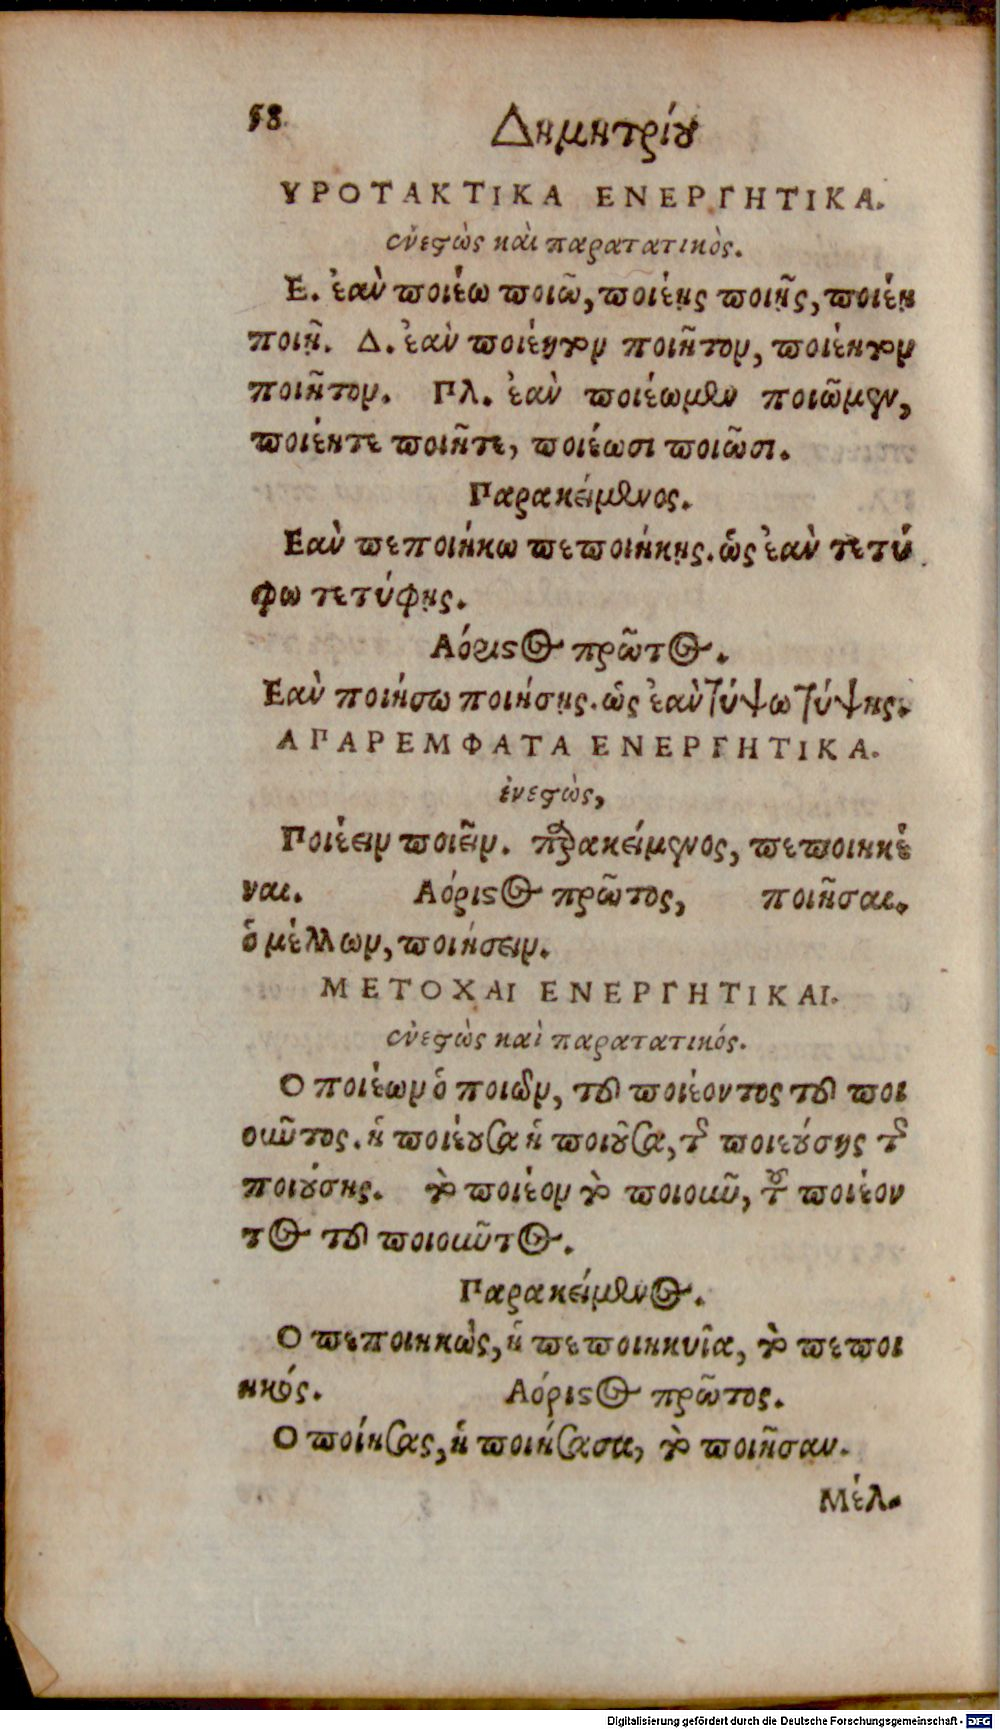 58
Δημητρίου
ΥΡΟΤΑΚΤΙΚΑ ΕΝΕΡΓΗΤΙΚΑ.
ἐνεστὼς καὶ παρατατικὸς.
Ε. ἐαν ποιέω ποιῶ, ποιέῃς ποιῇς, ποιέῃ
ποιῇ. Δ. ἐαν ποιέητον ποιῆτον, ποιέητον
ποιῆτον. Πλ. ἐαν ποιέωμεν ποιῶμεν,
ποιέητε ποιῆτε, ποιέωσι ποιῶσι.
Παρακείμενος.
Εαν πεποιήκω πεποιήκῃς. ὡς ἐαν τετύ
φω τετύφῃς.
Αόριστος πρῶτος.
Εαν ποιήσω ποιήσῃς. ὡς ἐαν τύψω τύψῃς.
ΑΠΑΡΕΜΦΑΤΑ ΕΝΕΡΓΗΤΙΚΑ.
ἐνεστὼς,
Ποιέειν ποιεῖν. παρακείμενος, πεποιηκέ
ναι. Αόριστος πρῶτος, ποιῆσαι.
ὁ μέλλων, ποιήσειν.
ΜΕΤΟΧΑΙ ΕΝΕΡΓΗΤΙΚΑΙ.
ἐνεστὼς καὶ παρατατικός.
Ο ποιέων ὁ ποιῶν, τοῦ ποιέοντος τοῦ ποι
οῦντος. ἡ ποιέουσα ἡ ποιοῦσα, τῆς ποιεούσης τῆς
ποιούσης. τὸ ποιέον τὸ ποιοῦν, τοῦ ποιέον
τος τοῦ ποιοῦντος.
Παρακείμενος.
Ο πεποιηκὼς, ἡ πεποιηκυῖα, τὸ πεποι
ηκός. Αόριστος πρῶτος.
Ο ποίησας, ἡ ποιήσασα, τὸ ποιῆσαν.
Μέλ.
Digitalisierung gefördert durch die Deutsche Forschungsgemeinschaft - DFG